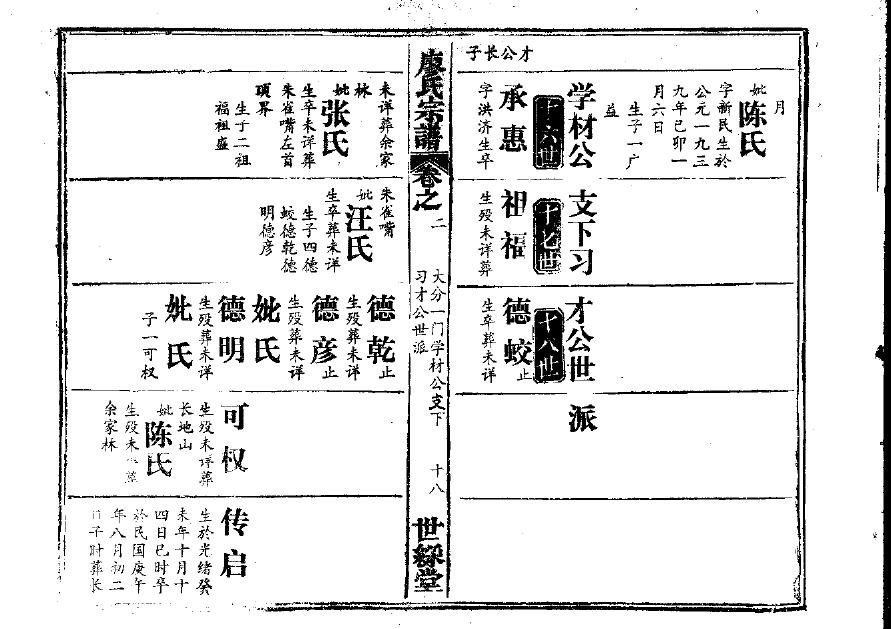 才公长子
月
妣陈氏
字新民生於
公元一九三
九年己卯一
月六日
生子一广
益
学材公支下习才公世派
十六世
承惠
字洪济生卒
十七世
祖福
生殁未详葬
十八世
德蛟止
生卒葬未详
廖氏宗譜
卷之二
大分一门学材公支下
习才公世派
十八
世綵堂
未详葬余家
林
妣张氏
生卒未详葬
朱雀嘴左首
项界
生子二祖
福祖盛
朱雀嘴
妣汪氏
生卒葬未详
生子四德
蛟德乾德
明德彦
德乾止
生殁葬未详
德彦止
生殁葬未详
妣氏
德明
生殁葬未详
妣氏
子一可权
可权
生殁未详葬
长地山
妣陈氏
生殁未葬
余家林
传启
生於光绪癸
未年十月十
四日巳时卒
於民国庚午
年八月初二
日子时葬长